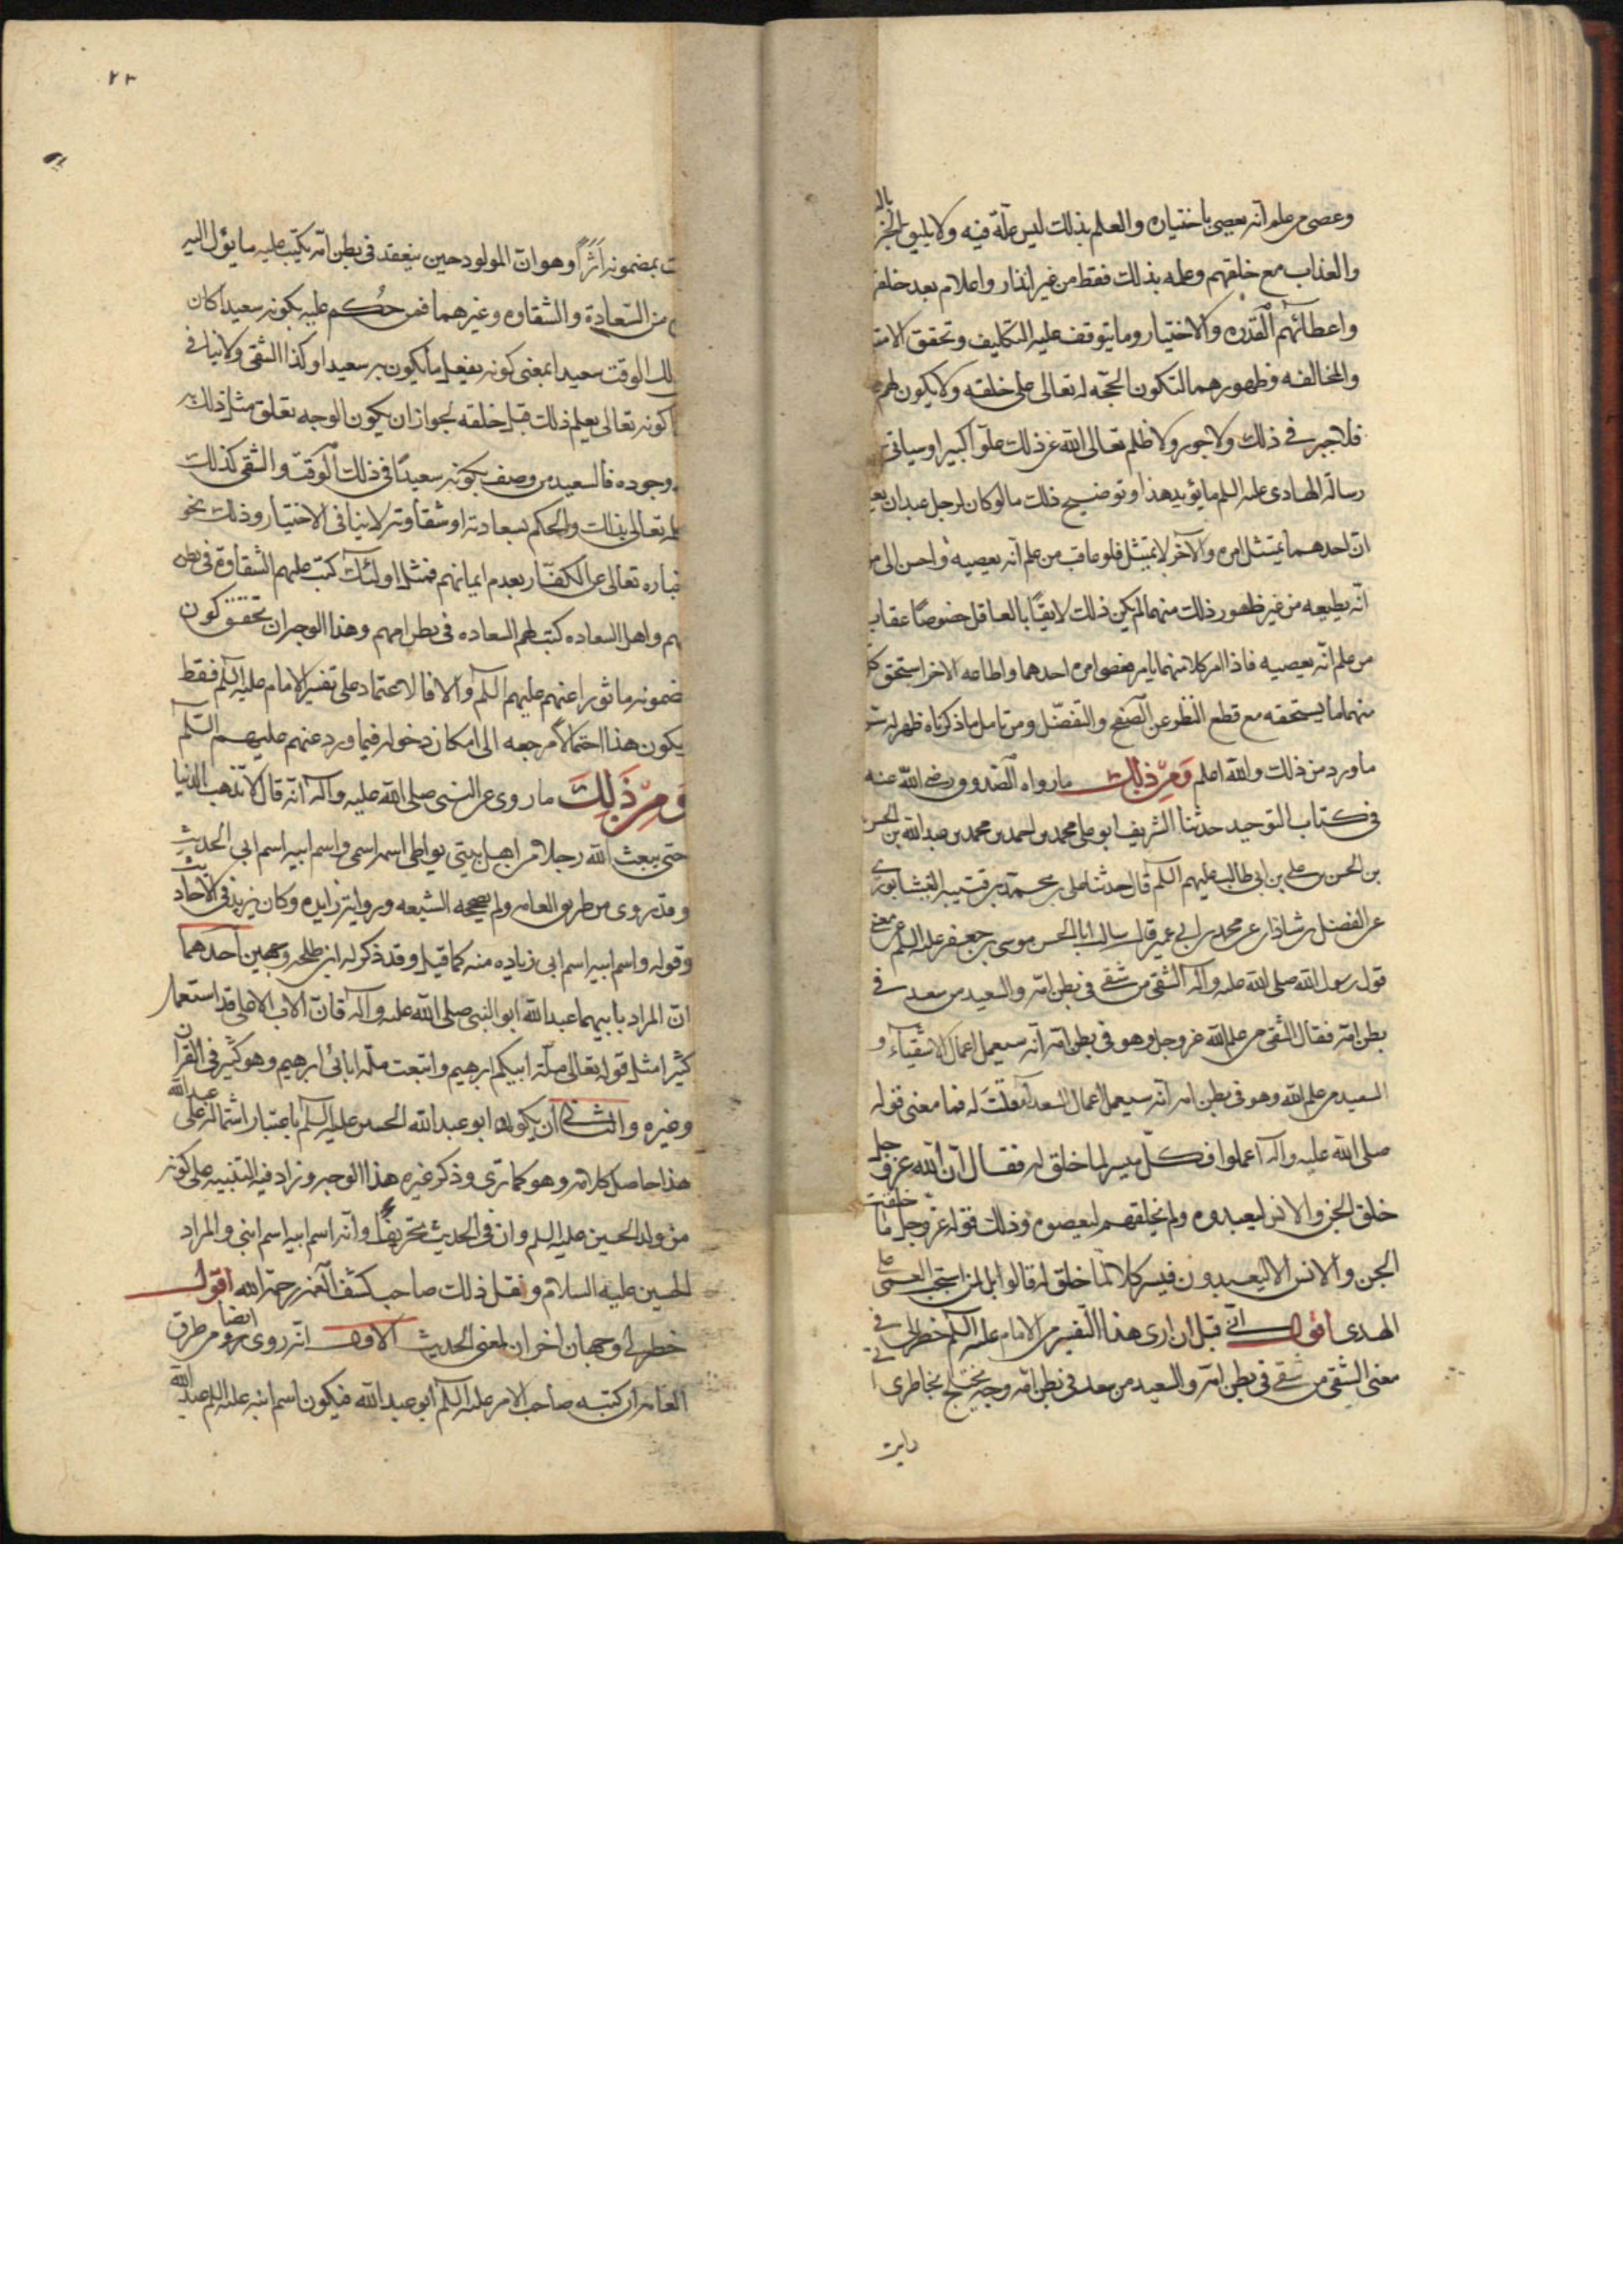 وعصى من علم انه يعصى باختياره والعلم بذلك ليس علّة فيه ولا يليق
والعذاب مع خلقهم وعلمه بذلك فقط من غير انذار واعلام بعد خلقهم
واعطائهم القدره والاختيار وما يتوقف عليه التكليف وتحقق
والمخالفه وظهورهما لتكون الحجّه له تعالى على خلقه ولا يكون لهم
فلا جبر في ذلك ولا جور ولا ظلم تعالى الله عن ذلك علوّا كبيرا وسياتى
رسالة الهادى عليه السلم ما يؤيد هذا وتوضيح ذلك ما لو كان لرجل عبدان
انّ احدهما يمتثل امره والآخر لا يمتثل فلو عاقب من علم انّه يعصيه واحسن الى
انّه يطيعه من غير ظهور ذلك منهما لم يكن ذلك لايقًا بالعاقل خصوصًا عقاب
من علم انّه يعصيه فاذا امر كلا منهما بامر فعصى امره احدهما واطاعه الاخر استحق كل
منهما ما يستحقه مع قطع النظر عن الصّفح والتفضّل ومن تامل ما ذكرناه ظهر له
ما ورد من ذلك والله اعلم ومن ذلك ما رواه الصّدوق رضى الله عنه
فى كتاب التوحيد حدثنا الشريف ابو على محمد بن احمد بن محمد بن عبد الله بن الحسن
بن الحسن بن على بن ابى طالب عليهم السلم قال حدثنا على بن محمد بن قتيبه النيشابورى
عن الفضل بن شاذان عن محمد بن ابى عمير قال سالت ابا الحسن موسى بن جعفر عليه السلم عن معنى
قول رسول الله صلى الله عليه وآله الشقى من شقى فى بطن امّه والسعيد من سعد فى
بطن امّه فقال الشقى من علم الله عز وجل وهو فى بطن امّه انّه سيعمل اعمال الاشقياء و
السعيد من علم الله وهو فى بطن امه انّه سيعمل اعمال السعدآء قلت له فما معنى قوله
صلى الله عليه وآله اعملوا فكلّ ميسر لما خلق له فقال انّ الله عز وجل
خلق الجن والانس ليعبدوه ولم يخلقهم ليعصوه وذلك قوله عز وجل ما خلقت
الجن والانس الا ليعبدون فيسر كلا لما خلق له فالويل لمن استحب العمى على
الهدى اقول انّى قبل ان ارى هذا التّفسير من الامام عليه السلم خطر لى فى
معنى الشقى من شقى فى بطن امّه والسعيد من سعد فى بطن امّه وجه يختلج بخاطرى
رايت
٢٣
بمضمونه اثرًا وهو انّ المولود حين ينعقد فى بطن امّه يكتب عليه ما يؤل اليه
من السّعادة والشقاوه وغيرهما فمن حكم عليه بكونه سعيدا كان
الوقت سعيدا بمعنى كونه يفعل ما يكون به سعيدا وكذا الشقى ولا ينافى
كونه تعالى يعلم ذلك قبل خلقه لجواز ان يكون الوجه تعلق مثل ذلك
وجوده فالسعيد من وصف بكونه سعيدًا فى ذلك الوقت والشقى كذلك
تعالى بذلك والحكم بسعادته او شقاوته لا ينافى الاختيار وذلك نحو
تعالى عن الكفّار بعدم ايمانهم فمثل اولئك كتب عليهم الشقاوة فى بطن
واهل السعاده كتب لهم السعاده فى بطن امهم وهذا الوجه ان تحقق كون
مضمونه ماثورا عنهم عليهم السلم والا فالاعتماد على تفسير الامام عليه السلم فقط
يكون هذا احتمالا مرجعه الى امكان دخوله فيما ورد عنهم عليهم السّلم
ومن ذلك ما روى عن النبى صلى الله عليه وآله انّه قال لا تذهب الدنيا
حتى يبعث الله رجلا من اهل بيتى يواطى اسمه اسمى واسم ابيه اسم ابى الحديث
وقد روى من طريق العامه ولم يصححه الشيعه وروايه زايده وكان يزيد فى الاحاديث
وقوله واسم ابيه اسم ابى زياده منه كما قيل وقد ذكر له ابن طلحه وجهين احدهما
انّ المراد بابيهما عبد الله ابو النبى صلى الله عليه وآله فانّ الاب الاعلى قد استعمل
كثيرا مثل قوله تعالى ملّة ابيكم ابرهيم واتبعت ملّه ابائى ابرهيم وهو كثير فى القرآن
وغيره والثانى ان يكون ابو عبد الله الحسين عليه السلم باعتبار اشتماله على عبد الله
هذا حاصل كلامه وهو كما ترى وذكر غيره هذا الوجه وزاد فيه التنبيه على كونه
من ولد الحسين عليه السلم وان فى الحديث تحريفًا وانّه اسم ابيه اسم ابنى والمراد
الحسين عليه السلام ونقل ذلك صاحب كشف الغمه رحمه الله اقول
خطر لى وجهان اخران لمعنى الحديث الاول انّه روى ايضا من طرق
العامه ان كنيه صاحب الامر عليه السلم ابو عبد الله فيكون اسم ابنه عليه السلم عبد الله